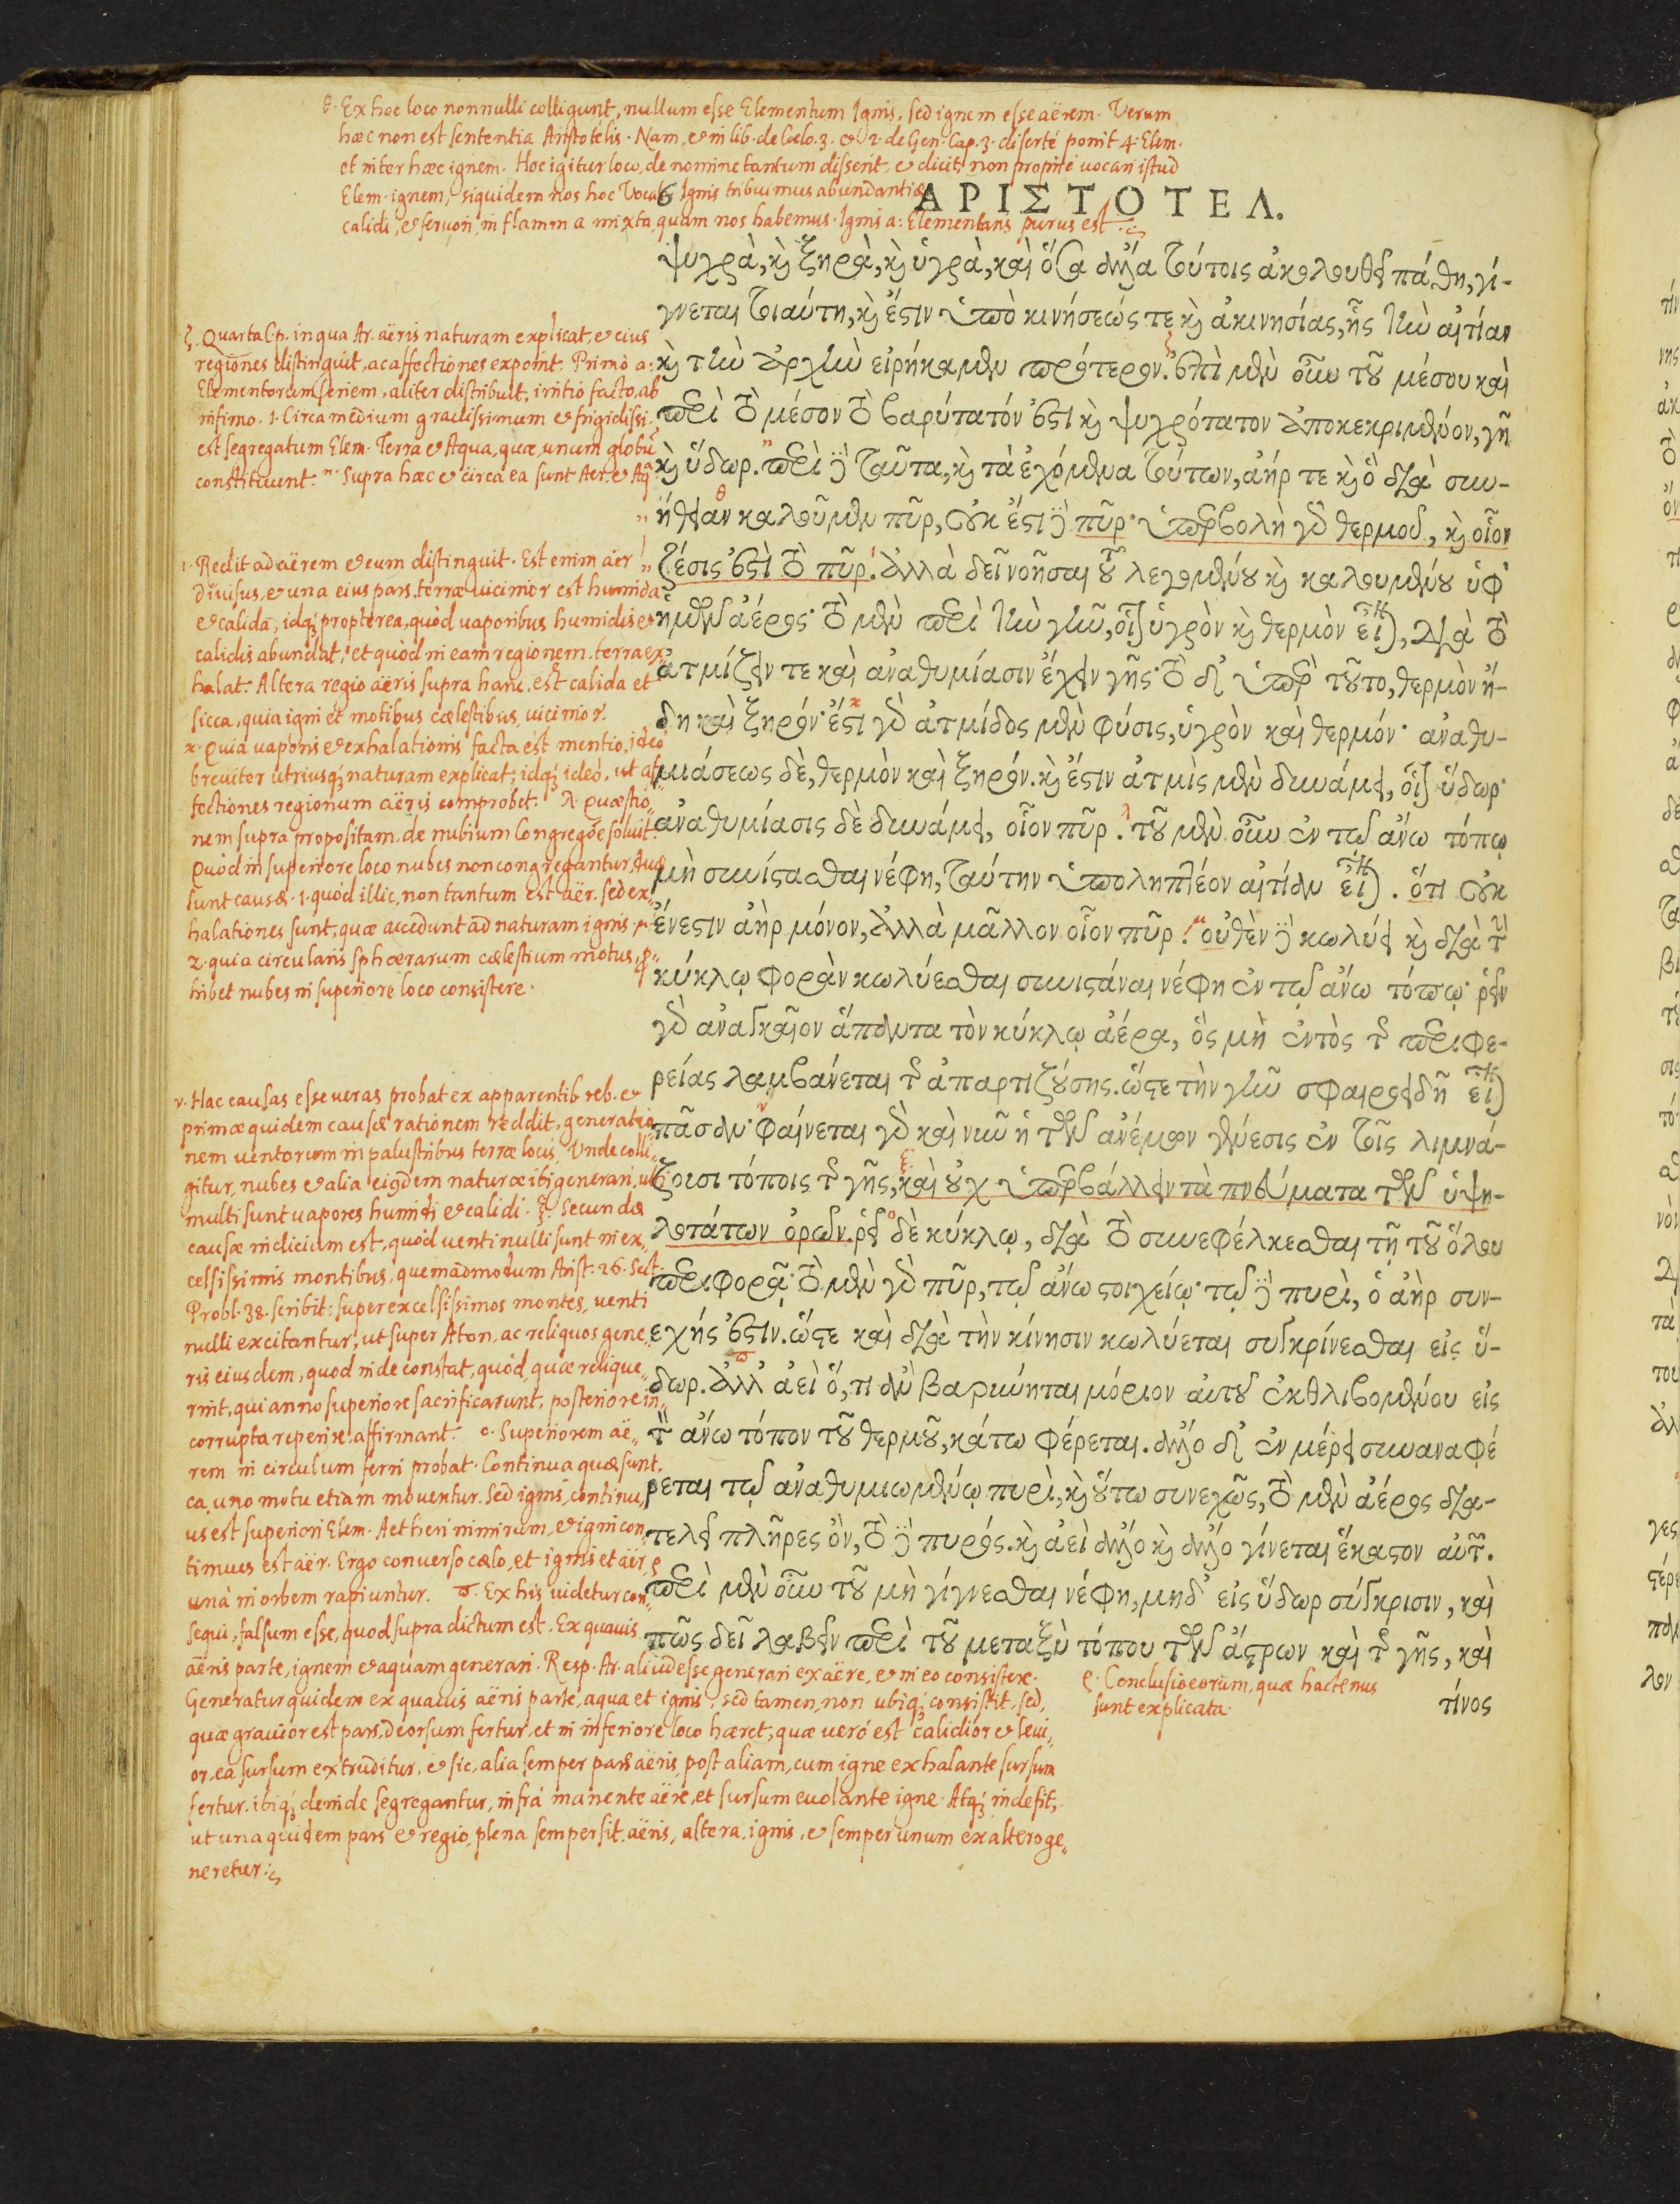 θ. Ex hoc loco nonnulli colligunt, nullum esse Elementum Ignis, sed ignem esse aërem. Verum
hæc non est sententia Aristotelis. Nam, & in lib. de Cælo. 3. & 2. de Gen. Cap. 3. disertè ponit 4. Elem.
et inter hæc ignem. Hoc igitur loco, de nomine tantum disserit, & dicit, non propriè uocari istud
Elem. ignem, siquidem nos hoc Vocab. Ignis tribuimus abundantiæ
calidi, & feruori, in flamma mixta, quam nos habemus. Ignis a: Elementaris purus est.
6 ΑΡΙΣΤΟΤΕΛ.
ψυχρὰ, κὶ ξηρὰ, κὶ ὑγρὰ, καὶ ὅσα ἄλλα τούτοις ἀκολουθεῖ πάθη, γί-
γνεται τοιαύτη, κὶ ἔστιν ὑπὸ κινήσεώς τε κὶ ἀκινησίας, ἧς τὴν αἰτίαν
κὶ τὴν ἀρχὴν εἰρήκαμεν πρότερον. ἐπὶ μὲν οὖν τοῦ μέσου καὶ
περὶ τὸ μέσον τὸ βαρύτατόν ἐστι κὶ ψυχρότατον ἀποκεκριμένον, γῆ
κὶ ὕδωρ. περὶ δὲ ταῦτα, κὶ τὰ ἐχόμενα τούτων, ἀήρ τε κὶ ὃ διὰ συν-
ήθειαν καλοῦμεν πῦρ, οὐκ ἔστι δὲ πῦρ· ὑπερβολὴ γὰρ θερμοῦ, κὶ οἷον
ζέσις ἐστὶ τὸ πῦρ. ἀλλὰ δεῖ νοῆσαι τοῦ λεγομένου κὶ καλουμένου ὑφ᾽
ἡμῶν ἀέρος· τὸ μὲν περὶ τὴν γῆν, οἷον ὑγρὸν κὶ θερμὸν εἶναι, διὰ τὸ
ἀτμίζειν τε καὶ ἀναθυμίασιν ἔχειν γῆς· τὸ δὲ ὑπὲρ τοῦτο, θερμὸν ἤ-
δη καὶ ξηρόν· ἔστι γὰρ ἀτμίδος μὲν φύσις, ὑγρὸν καὶ θερμόν· ἀναθυ-
μιάσεως δὲ, θερμὸν καὶ ξηρόν. κὶ ἔστιν ἀτμὶς μὲν δυνάμει, οἷον ὕδωρ·
ἀναθυμίασις δὲ δυνάμει, οἷον πῦρ. τοῦ μὲν οὖν ἐν τῷ ἄνω τόπῳ
μὴ συνίστασθαι νέφη, ταύτην ὑποληπτέον αἰτίαν εἶναι. ὅτι οὐκ
ἔνεστιν ἀὴρ μόνον, ἀλλὰ μᾶλλον οἷον πῦρ. οὐθὲν δὲ κωλύει κὶ διὰ τὴν
κύκλῳ φορὰν κωλύεσθαι συνιστάναι νέφη ἐν τῷ ἄνω τόπῳ· ῥεῖν
γὰρ ἀναγκαῖον ἅπαντα τὸν κύκλῳ ἀέρα, ὃς μὴ ἐντὸς τῆς περιφε-
ρείας λαμβάνεται τῆς ἀπαρτιζούσης. ὥστε τὴν γῆν σφαιροειδῆ εἶναι
πᾶσαν· φαίνεται γὰρ καὶ νῦν ἡ τῶν ἀνέμων γένεσις ἐν τοῖς λιμνά-
ζουσι τόποις τῆς γῆς, καὶ οὐχ ὑπερβάλλειν τὰ πνεύματα τῶν ὑψη-
λοτάτων ὀρῶν. ῥεῖ δὲ κύκλῳ, διὰ τὸ συνεφέλκεσθαι τῇ τοῦ ὅλου
περιφορᾷ· τὸ μὲν γὰρ πῦρ, τῷ ἄνω στοιχείῳ· τῷ δὲ πυρὶ, ὁ ἀὴρ συν-
εχής ἐστιν. ὥστε καὶ διὰ τὴν κίνησιν κωλύεται συγκρίνεσθαι εἰς ὕ-
δωρ. ἀλλ᾽ ἀεὶ ὅ, τι ἂν βαρύνηται μόριον αὐτοῦ ἐκθλιβομένου εἰς
τὸν ἄνω τόπον τοῦ θερμοῦ, κάτω φέρεται. ἄλλο δὲ ἐν μέρει συναναφέ
ρεται τῷ ἀναθυμιωμένῳ πυρὶ, κὶ οὕτω συνεχῶς, τὸ μὲν ἀέρος δια-
τελεῖ πλῆρες ὂν, τὸ δὲ πυρός. κὶ ἀεὶ ἄλλο κὶ ἄλλο γίνεται ἕκαστον αὐτῶν.
περὶ μὲν οὖν τοῦ μὴ γίγνεσθαι νέφη, μηδ᾽ εἰς ὕδωρ σύγκρισιν, καὶ
πῶς δεῖ λαβεῖν περὶ τοῦ μεταξὺ τόπου τῶν ἄστρων καὶ τῆς γῆς, καὶ
τίνος
ζ. Quarta Cp. in qua Ar. aëris naturam explicat, & eius
regiones distinguit, ac affectiones exponit. Primò a:
Elementorum seriem, aliter distribuit, initio facto, ab
infimo. 1. Circa medium grauissimum & frigidissi.
est segregatum Elem. Terra & Aqua, quæ unum globū
constituunt. η. Supra hæc & circa ea sunt Aer. & Aq
ι. Redit ad aërem & eum distinguit. Est enim aër
diuisus, & una eius pars, terræ uicinior est humida
& calida, idq; propterea, quòd uaporibus humidis &
calidis abundat, et quòd in eam regionem. terra ex
halat. Altera regio aëris supra hanc, est calida et
sicca, quia igni et motibus cælestibus, uicinior.
κ. Quia uaporis & exhalationis facta est mentio, ideò
breuiter utriusq; naturam explicat; idq; ideò, ut af
fectiones regionum aëris comprobet. λ. Quæstio„
nem supra propositam. de nubium Congregõe soluit.
Quòd in superiore loco nubes non congregantur, duæ
sunt causæ. 1. quòd illic, non tantum est aër. sed ex„
halationes sunt, quæ accedunt ad naturam ignis. μ
2. quia circularis sphærarum cælestium motus, p„
hibet nubes in superiore loco consistere.
ν. Hac causas esse ueras probat ex apparentib. reb. &
primæ quidem causæ rationem reddit, generatio„
nem uentorum in palustribus terræ locis, Unde colli„
gitur, nubes & alia eiusdem naturæ ibi generari, ubi
multi sunt uapores humidi & calidi. ξ. Secundæ
causæ indicium est, quòd uenti nulli sunt in ex„
celsissimis montibus, quemadmodum Arist. 26. Sect.
Probl. 38. scribit: super excelsissimos montes, uenti
nulli excitantur, ut super Aton, ac reliquos gene„
ris eiusdem, quod inde constat, quòd, quæ relique„
rint, qui anno superiore sacrificarunt, posteriore in„
corrupta reperiri affirmant. ο. Superiorem aë„
rem in circulum ferri probat. Continua quæ sunt,
ea uno motu etiam mouentur. Sed ignis, continu„
us est superiori Elem. Aetheri nimirum, & igni con„
tinuus est aër. Ergo conuerso cælo, et ignis et aër,
unà in orbem rapiuntur. π. Ex his uidetur con„
sequi, falsum esse, quod supra dictum est. Ex quauis
aëris parte, ignem & aquam generari. Resp. Ar. aliud esse generari ex aëre, & in eo consistere.
Generatur quidem ex quauis aëris parte, aqua et ignis, sed tamen, non ubiq; consistit, sed,
quæ grauior est pars, deorsum fertur, et in inferiore loco hæret, quæ uerò est calidior & leui„
or, ea sursum extruditur, & sic, alia semper pars aëris, post aliam, cum igne exhalante sursum
fertur. ibiq; deinde segregantur, infrà manente aëre, et sursum euolante igne. Atq; inde fit,
ut una quidem pars & regio, plena semper sit, aëris, altera, ignis, & semper unum ex altero ge„
neretur.
ρ. Conclusio eorum, quæ hactenus
sunt explicata.